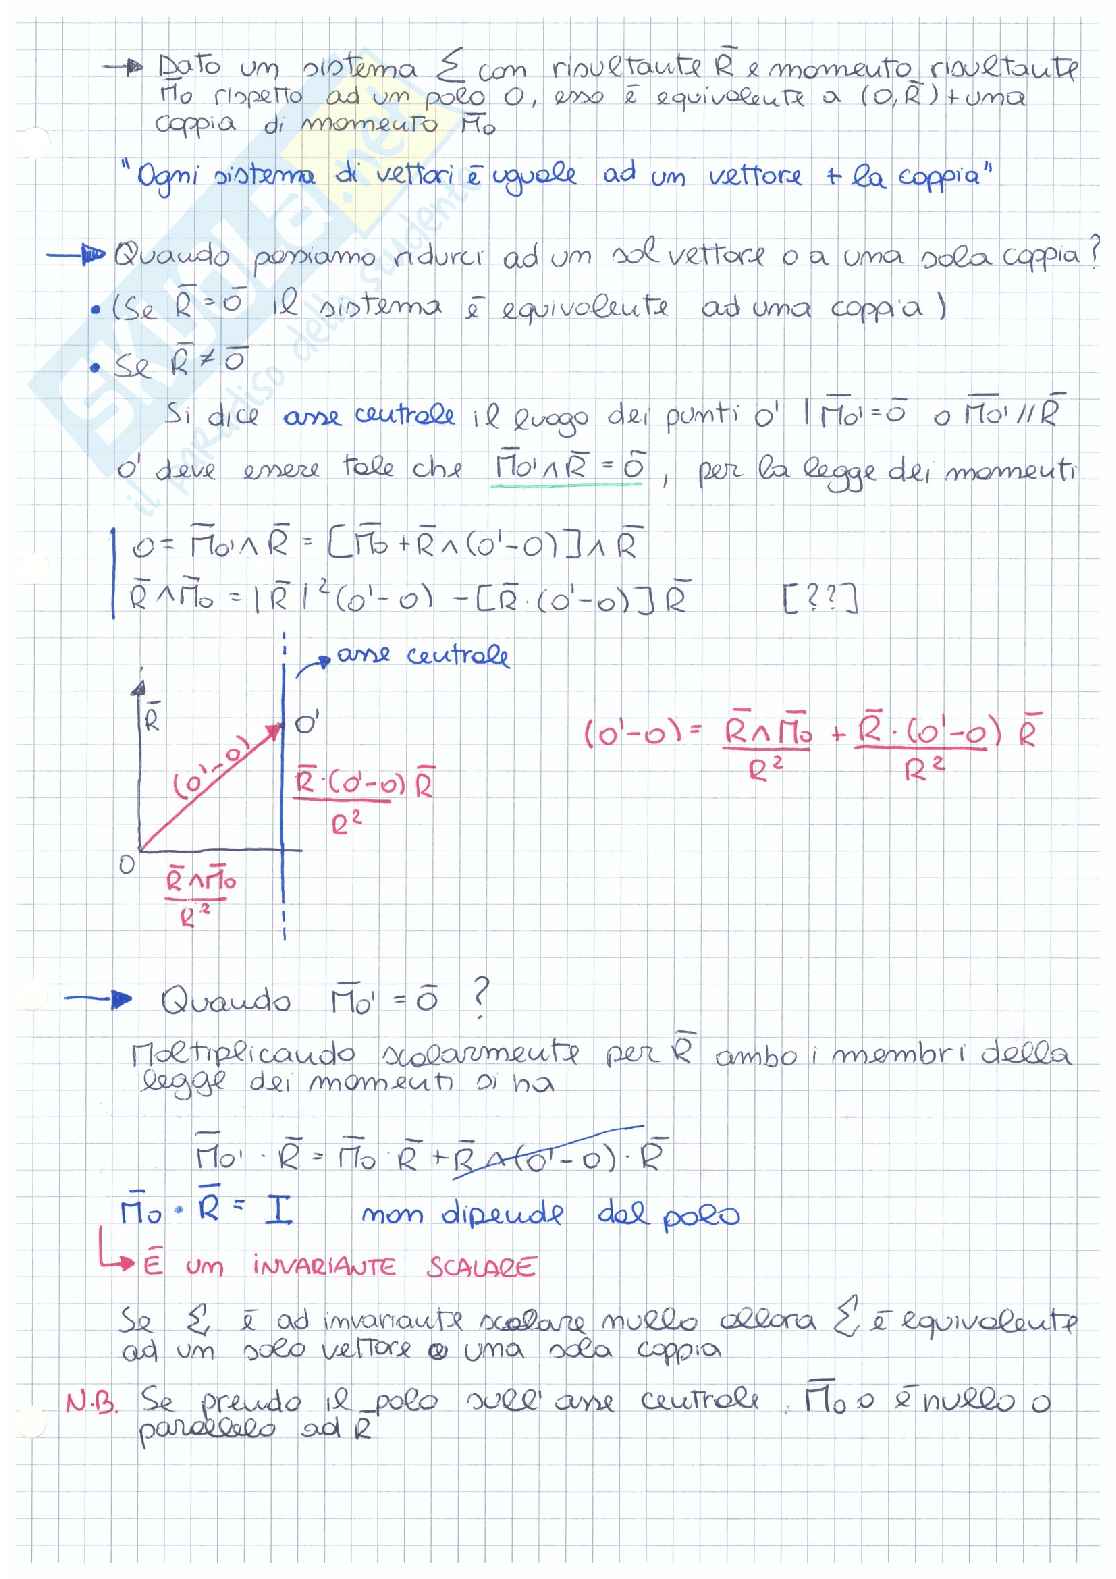 → Dato un sistema Σ con risultante R̄ e momento risultante
M̄o rispetto ad un polo O, esso è equivalente a (O,R̄)+una
coppia di momento M̄o
"Ogni sistema di vettori è uguale ad un vettore + la coppia"
→ Quando possiamo ridurci ad un sol vettore o a una sola coppia?
• (Se R̄=ō il sistema è equivalente ad una coppia)
• Se R̄≠ō
Si dice asse centrale il luogo dei punti O' | M̄o'=ō o M̄o'//R̄
O' deve essere tale che M̄o'∧R̄=ō, per la legge dei momenti
0= M̄o'∧R̄ = [M̄o+R̄∧(O'-O)]∧R̄
R̄∧M̄o = |R̄|²(O'-O) -[R̄·(O'-O)]R̄ [??]
→ asse centrale
R̄
O'
(O'-O)
R̄·(O'-O) R̄
R²
(O'-O)= R̄∧M̄o/R² + R̄·(O'-O)/R² R̄
O
R̄∧M̄o
R²
→ Quando M̄o'=ō ?
Moltiplicando scalarmente per R̄ ambo i membri della
legge dei momenti si ha
M̄o'·R̄= M̄o·R̄+R̄∧(O'-O)·R̄
M̄o·R̄ = I non dipende dal polo
↳ È un INVARIANTE SCALARE
Se Σ è ad invariante scalare nullo allora Σ è equivalente
ad un solo vettore o una sola coppia
N.B. Se prendo il polo sull'asse centrale. M̄o o è nullo o
parallelo ad R̄
SKUOLA.net
il paradiso dello studente